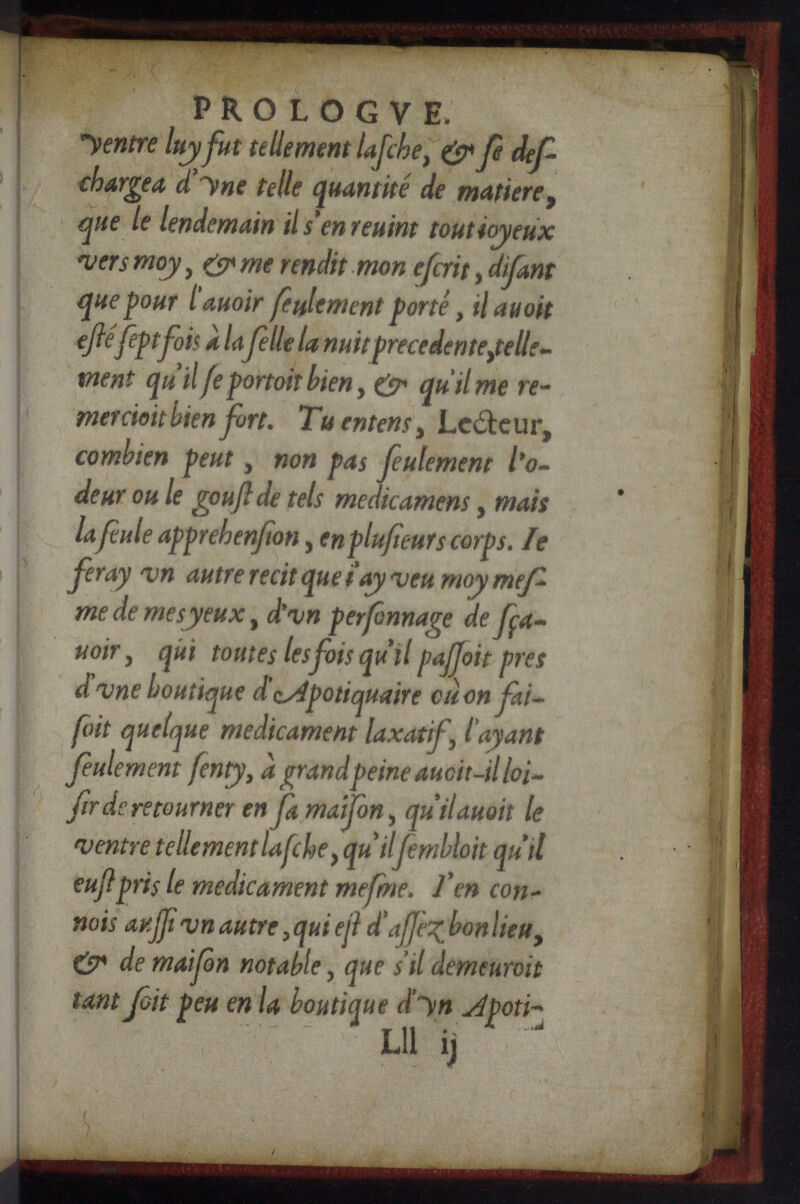 PROLOGVE.
ventre luy fut tellement lasche, & se des-
chargea d'vne telle quantité de matiere,
que le lendemain il s'en reuint tout ioyeux
vers moy, & me rendit mon escrit, disant
que pour l'auoir seulement porté, il auoit
esté sept fois à la selle la nuit precedente, telle-
ment qu'il se portoit bien, & qu'il me re-
mercioit bien fort. Tu entens, Lecteur,
combien peut, non pas seulement l'o-
deur ou le goust de tels medicamens, mais
la seule apprehension, en plusieurs corps. Ie
feray vn autre recit que i'ay veu moy mes-
me de mes yeux, d'vn personnage de sça-
uoir, qui toutes les fois qu'il passoit pres
d'vne boutique d'Apotiquaire où on fai-
soit quelque medicament laxatif, l'ayant
seulement senty, à grand peine auoit-il loi-
sir de retourner en sa maison, qu'il auoit le
ventre tellement lasche, qu'il sembloit qu'il
eust pris le medicament mesme. I'en con-
nois aussi vn autre, qui est d'assez bon lieu,
& de maison notable, que s'il demeuroit
tant soit peu en la boutique d'vn Apoti-
Lll ij